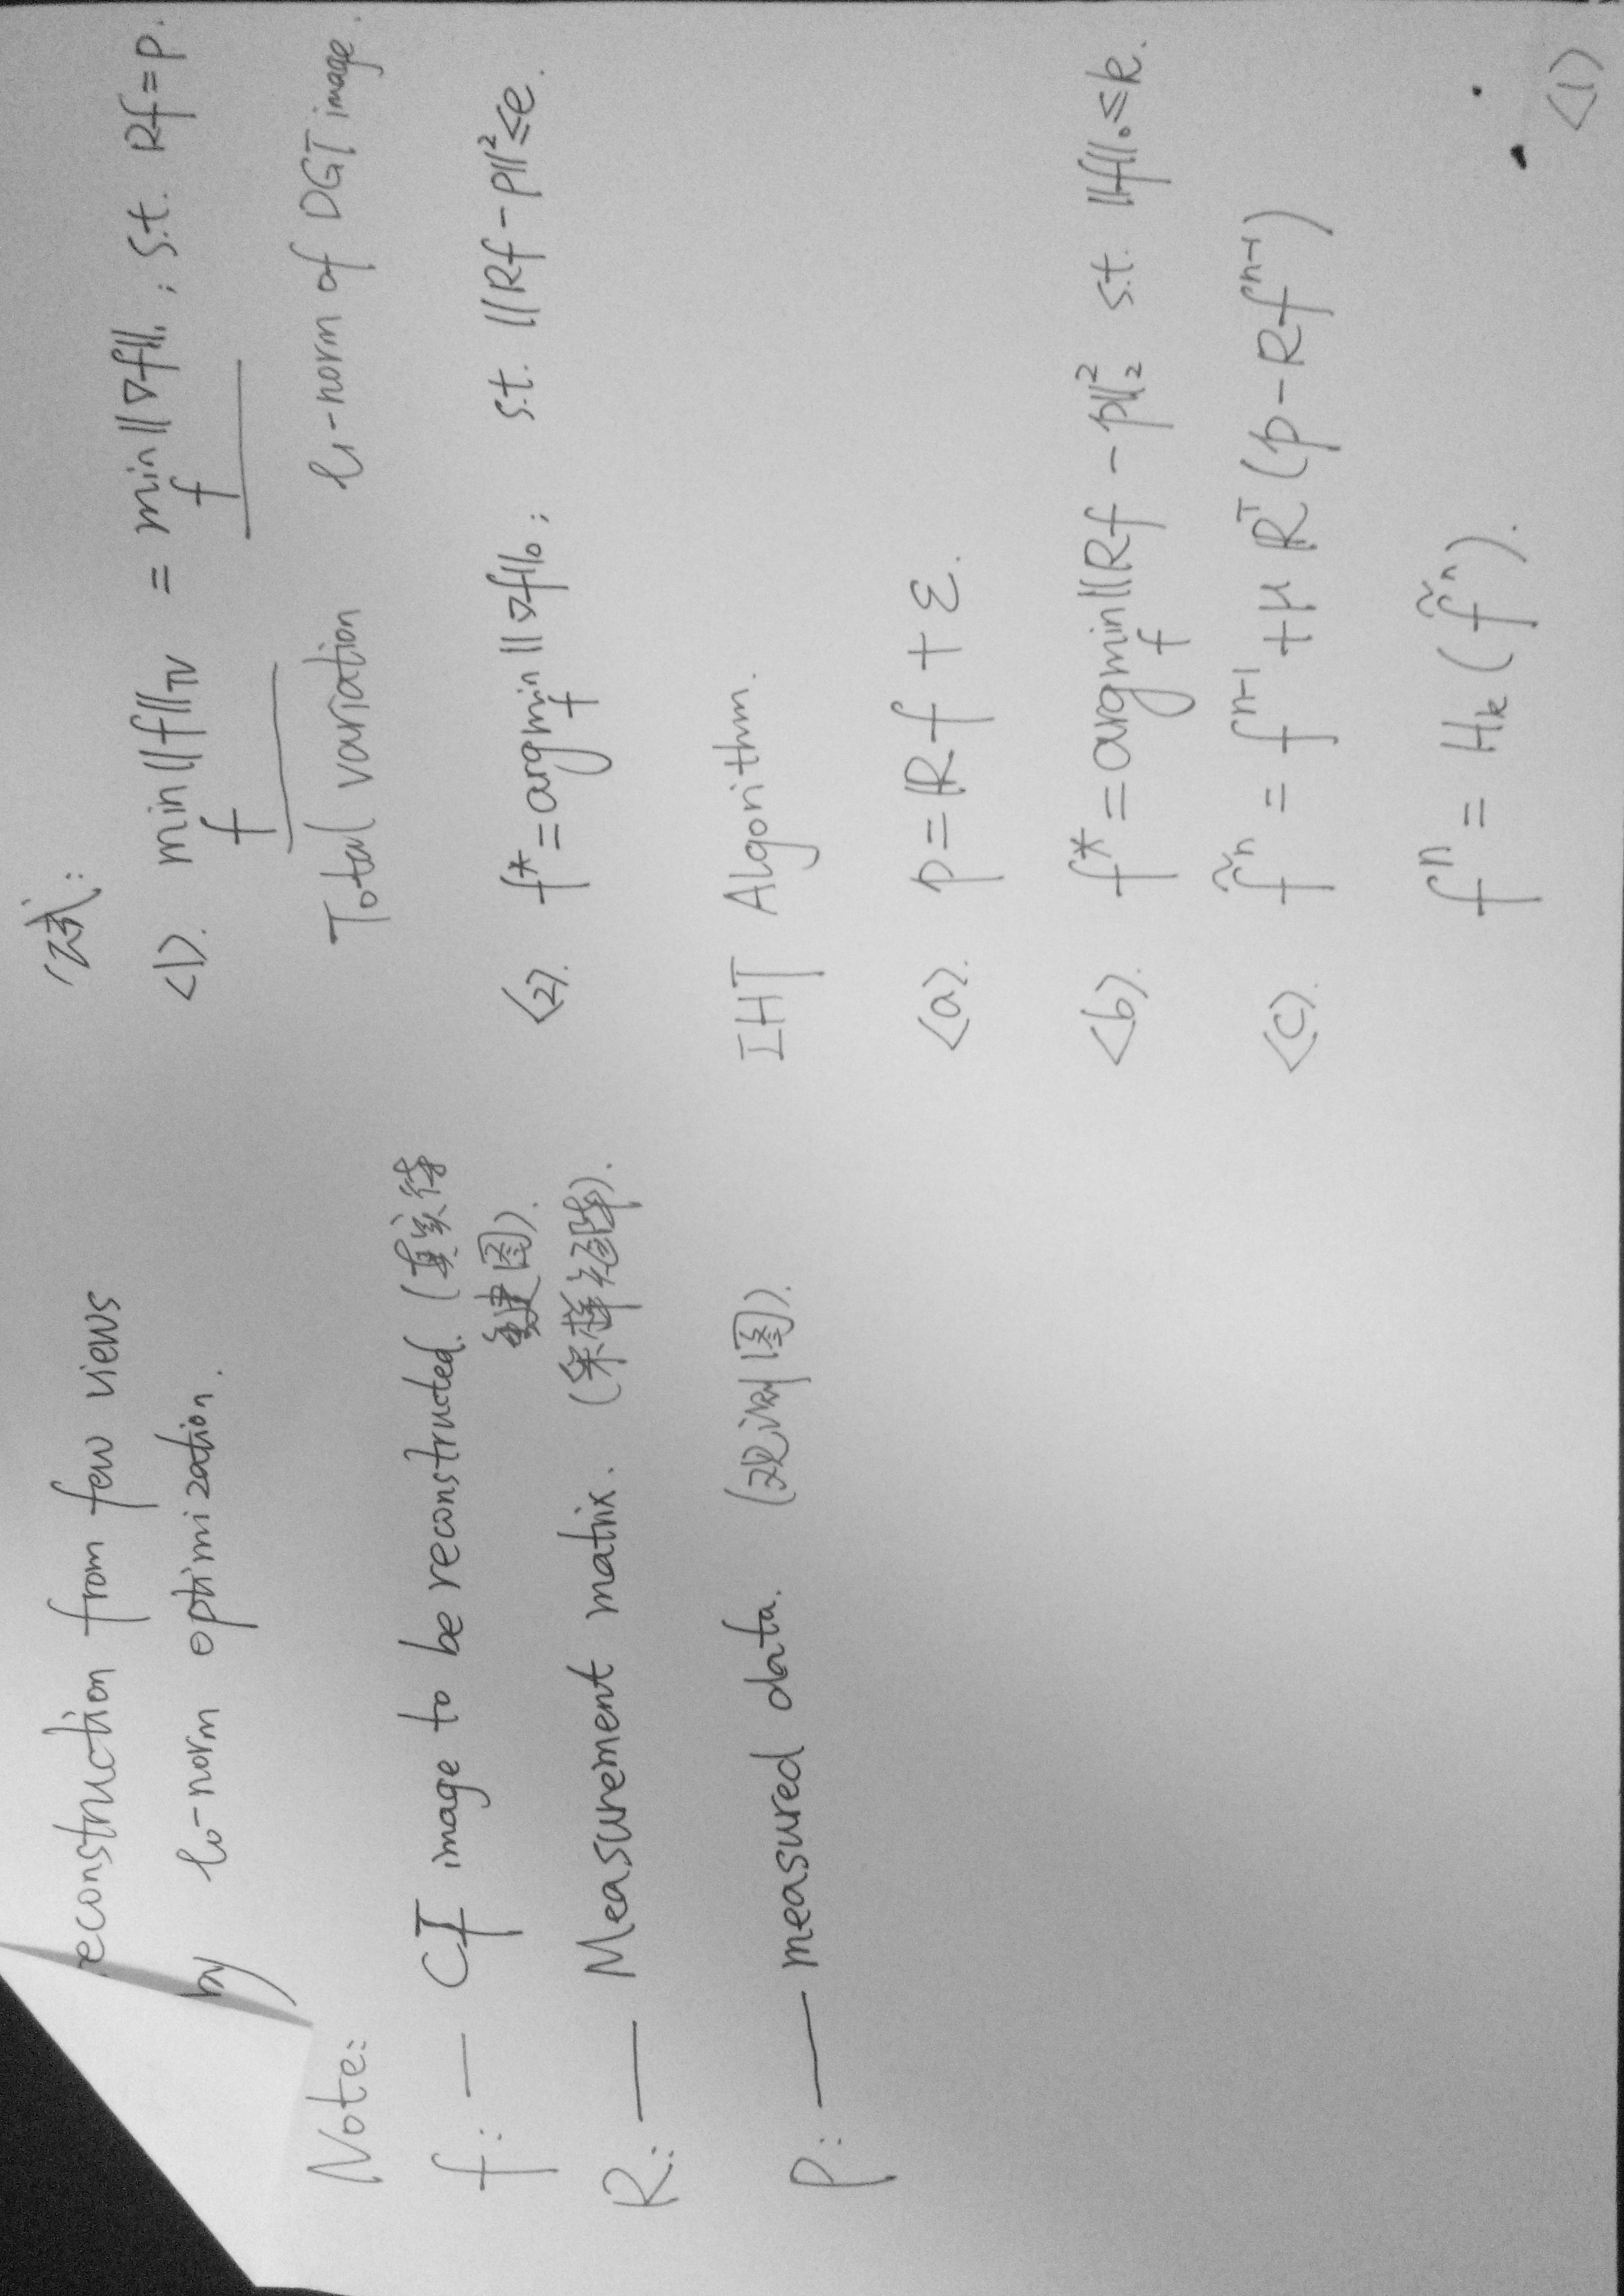 econstruction from few views
by l₀-norm optimization.
Note:
f: — CT image to be reconstructed. (真实待
重建图).
R: — Measurement matrix. (采样矩阵).
P: — measured data. (观测图).
公式:
<1>. min_f ||f||_TV = min_f ||∇f||₁ ; s.t. Rf=P.
Total variation l₁-norm of DGT image.
<2>. f* = argmin_f ||∇f||₀ ; s.t. ||Rf-p||² ≤ e.
IHT Algorithm.
<a>. p = Rf + ε.
<b>. f* = argmin_f ||Rf - p||₂² s.t. ||f||₀ ≤ k.
<c>. f̃ⁿ = fⁿ⁻¹ + μ Rᵀ (p - Rfⁿ⁻¹)
fⁿ = H_k (f̃ⁿ).
<1>